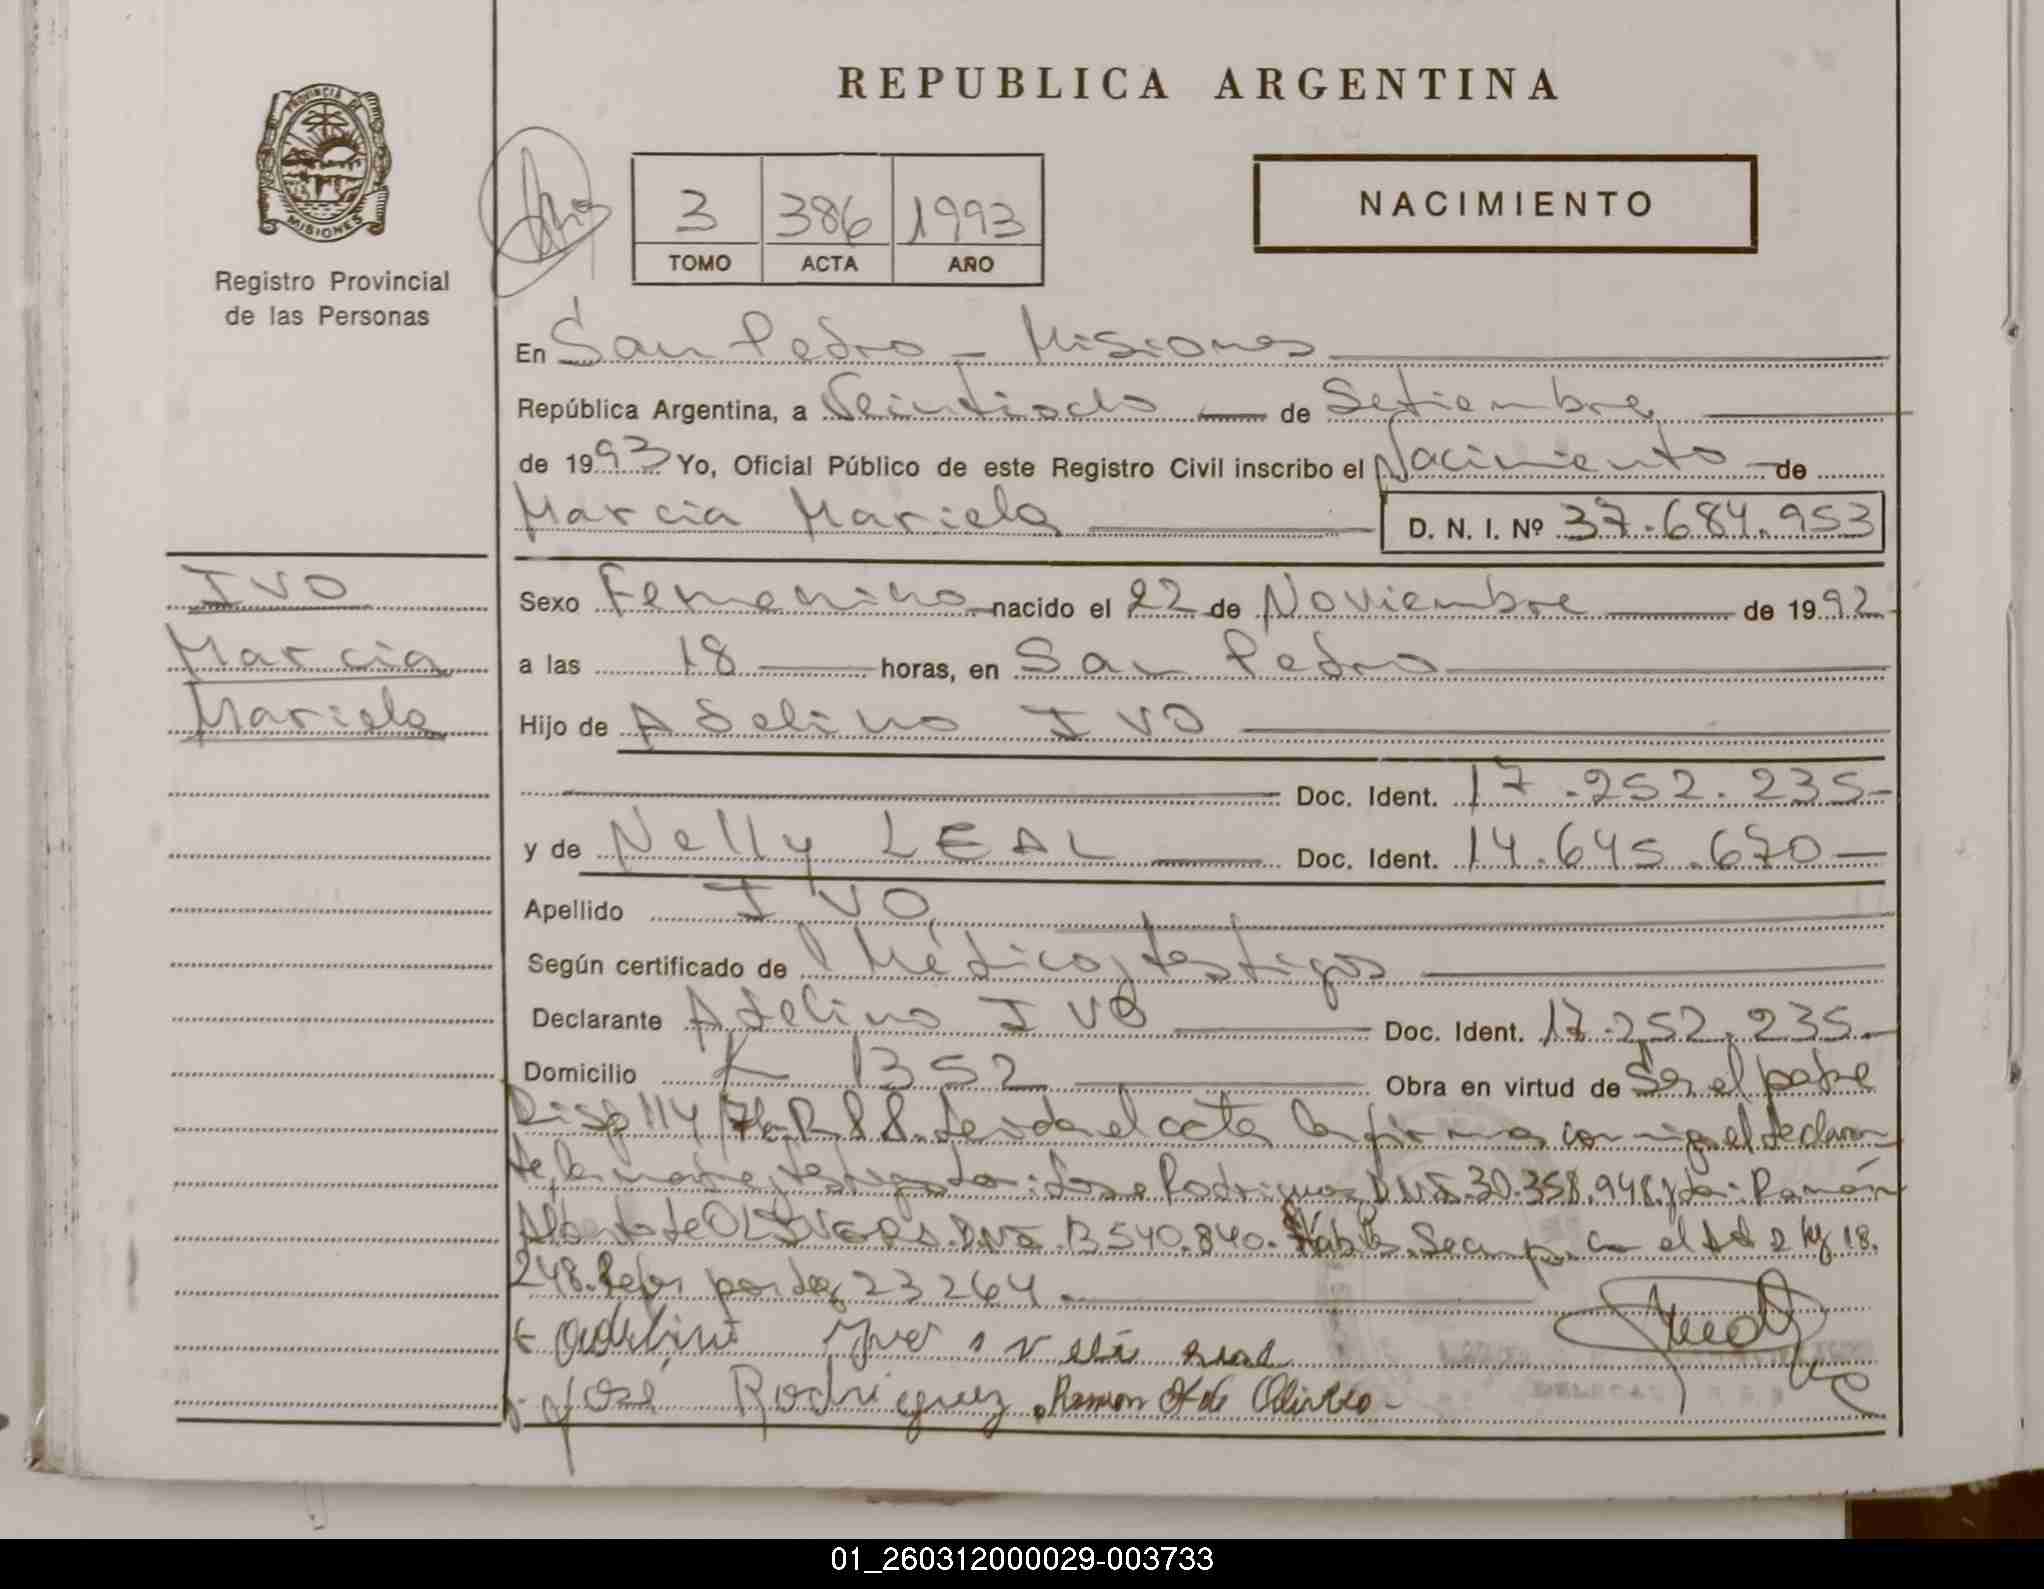 REPUBLICA ARGENTINA
PROVINCIA DE
MISIONES
Registro Provincial
de las Personas
NACIMIENTO
3 386 1993
TOMO ACTA AÑO
En San Pedro - Misiones
República Argentina, a Veintiodo de Setiembre
de 1993 Yo, Oficial Público de este Registro Civil inscribo el Nacimiento de
Marcia Mariela D. N. I. Nº 37.684.953
IVO
Marcia
Mariela
Sexo Femenino nacido el 22 de Noviembre de 1992
a las 18 horas, en San Pedro
Hijo de Adelino IVO
Doc. Ident. 17.252.235
y de Nelly LEAL Doc. Ident. 14.645.670
Apellido IVO
Según certificado de Médico, testigos
Declarante Adelino IVO Doc. Ident. 17.252.235
Domicilio K 1352 Obra en virtud de Ser el padre
Disp 114 Leida el acta la firman conmigo el declaran
te, la madre, testigos Jose Rodriguez DNI. 30.358.948 y Ramón
Alberto de OLIVERA. DNI. 13.540.840. 2 kg 18.
248. 23264
José Rodriguez Ramon A de
01_260312000029-003733